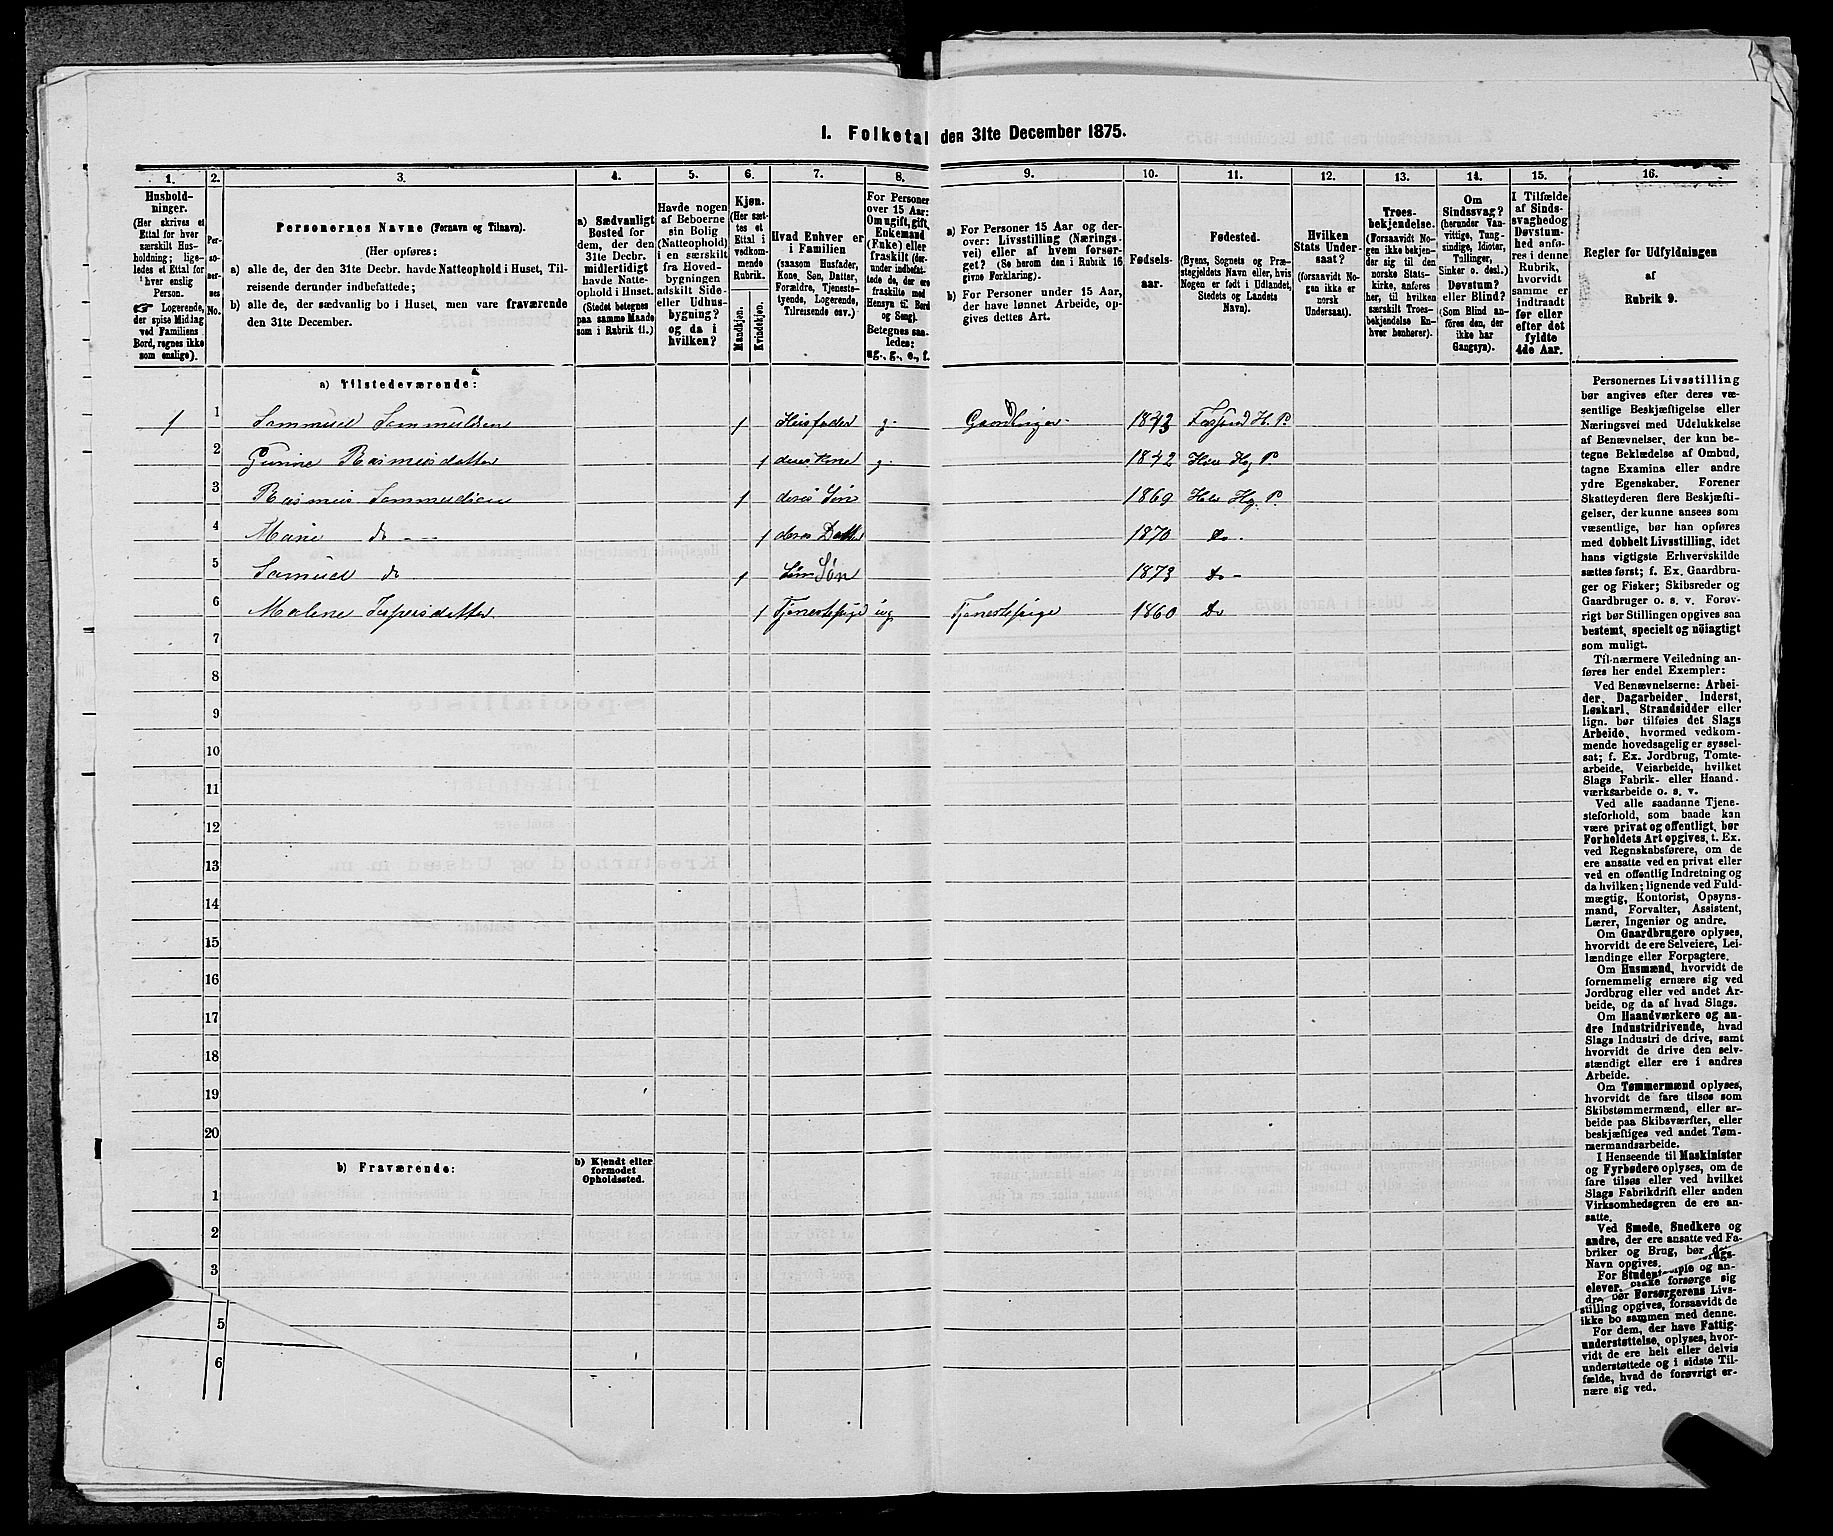 1. Folketal den 31te December 1875.
1. 2. 3. 4. 5. 6. 7. 8. 9. 10. 11. 12. 13. 14. 15. 16.
Hushold-
ninger.
(Her skrives et
Ettal for hver
særskilt Hus-
holdning; lige-
ledes et Ettal for
hver enslig
Person.
☞ Logerende,
der spise Middag
ved Familiens
Bord, regnes ikke
som enslige).
Per-
so-
ner-
nes
No.
Personernes Navne (Fornavn og Tilnavn).
(Her opføres:
a) alle de, der den 31te Decbr. havde Natteophold i Huset, Til-
reisende derunder indbefattede;
b) alle de, der sædvanlig bo i Huset, men vare fraværende
den 31te December.
a) Sædvanligt
Bosted for
dem, der den
31te Decbr.
midlertidigt
havde Natte-
ophold i Huset.
(Stedet betegnes
paa samme Maade
som i Rubrik 11.)
Havde nogen
af Beboerne
sin Bolig
(Natteophold)
i en særskilt
fra Hoved-
bygningen
adskilt Side-
eller Udhus-
bygning?
og da i
hvilken?
Kjøn.
(Her sæt-
tes et
Ettal i
vedkom-
mende
Rubrik.
Mandkjøn.
Kvindekjøn.
Hvad Enhver er
i Familien
(saasom Husfader,
Kone, Søn, Datter,
Forældre, Tjeneste-
tyende, Logerende,
Tilreisende osv.)
For Personer
over 15 Aar:
Om ugift, gift,
Enkemand
(Enke) eller
fraskilt
Betegnes saa-
ledes:
ug., g., e., f.
a) For Personer 15 Aar og der-
over: Livsstilling (Nærings-
vei) eller af hvem forsør-
get? (Se herom den i Rubrik 16
givne Forklaring).
b) For Personer under 15 Aar,
der have lønnet Arbeide, op-
gives dettes Art.
Fødsels-
aar.
Fødested.
(Byens, Sognets og Præ-
stegjeldets Navn eller, hvis
Nogen er født i Udlandet,
Stedets og Landets
Navn).
Hvilken
Stats Under-
saat?
(forsaavidt No-
gen ikke er
norsk
Undersaat).
Troes-
bekjendelse.
(Forsaavidt No-
gen ikke bekjen-
der sig til den
norske Stats-
kirke, anføres
her, til hvilken
særskilt Troes-
bekjendelse En-
hver henhører).
Om
Sindssvag?
(herunder Van-
vittige, Tung-
sindige, Idioter,
Tullinger,
Sinker o. desl.)
Døvstum?
eller Blind?
(Som Blind an-
føres den, der
ikke har
Gangsyn).
I Tilfælde
af Sinds-
svaghed og
Døvstum-
hed anfø-
res i denne
Rubrik,
hvorvidt
samme er
indtraadt
før eller
efter det
fyldte
4de Aar.
Regler for Udfyldningen
af
Rubrik 9.
a) Tilstedeværende:
1 1 Sammuel Sammuelsen 1 Husfader g. 1843
2 Gurine Rasmusdatter 1 deres Kone g. 1842
3 Rasmus Sammuelsen 1 deres Søn 1869
4 Marie do 1 deres Datter 1870 do.
5 Samuel do 1 Søn 1873 do
6 Malene Jespersdatter 1 Tjenestepige ug Tjenestepige 1860 do
7
8
9
10
11
12
13
14
15
16
17
18
19
20
b) Fraværende:
b) Kjendt eller
formodet
Opholdssted.
1
2
3
5
6
Personernes Livsstilling
bør angives efter deres væ-
sentlige Beskjæftigelse eller
Næringsvei med Udelukkelse
af Benævnelser, der kun be-
tegne Beklædelse af Ombud,
tagne Examina eller andre
ydre Egenskaber. Forener
Skatteyderen flere Beskjæfti-
gelser, der kunne ansees som
væsentlige, bør han opføres
med dobbelt Livsstilling, idet
hans vigtigste Erhvervskilde
sættes først; f. Ex. Gaardbru-
ger og Fisker; Skibsreder og
Gaardbruger o. s. v. Forøv-
rigt bør Stillingen opgives saa
bestemt, specielt og nöiagtigt
som muligt.
Til nærmere Veiledning an-
føres her endel Exempler:
Ved Benævnelserne: Arbei-
der, Dagarbeider, Inderst,
Løskarl, Strandsidder eller
lign. bør tilføies det Slags
Arbeide, hvormed vedkom-
mende hovedsagelig er syssel-
sat; f. Ex. Jordbrug, Tomte-
arbeide, Veiarbeide, hvilket
Slags Fabrik- eller Haand-
værksarbeide o. s. v.
Ved alle saadanne Tjene-
steforhold, som baade kan
være privat og offentligt, bør
Forholdets Art opgives, t. Ex.
ved Regnskabsførere, om de
ere ansatte ved en privat eller
ved en offentlig Indretning og
da hvilken; lignende ved Fuld-
mægtig, Kontorist, Opsyns-
mand, Forvalter, Assistent,
Lærer, Ingeniør og andre.
Om Gaardbrugere oplyses,
hvorvidt de ere Selveiere, Lei-
lændinge eller Forpagtere.
Om Husmænd, hvorvidt de
fornemmelig ernære sig ved
Jordbrug eller ved andet Ar-
beide, og da af hvad Slags.
Om Haandværkere og an-
dre Industridrivende, hvad
Slags Industri de drive, samt
hvorvidt de drive den selv-
stændigt eller ere i andres
Arbeide.
Om Tømmermænd oplyses,
hvorvidt de fare tilsøs som
Skibstømmermænd, eller ar-
beide paa Skibsværfter, eller
beskjæftiges ved andet Tøm-
mermandsarbeide.
I Henseende til Maskinister
og Fyrbødere oplyses, om de
fare tilsøs eller ved hvilket
Slags Fabrikdrift eller anden
Virksomhedsgren de ere an-
satte.
Ved Smede, Snedkere og
andre, der ere ansatte ved Fa-
briker og Brug, bør
Navn opgives.
For
elever, forsørge sig
bør Forsørgerens Livs-
stilling opgives, forsaavidt de
ikke bo sammen med denne.
For dem, der have Fattig-
understøttelse, oplyses, hvor-
vidt de ere helt eller delvis
understøttede og i sidste Til-
fælde, hvad de forøvrigt er-
nære sig ved.